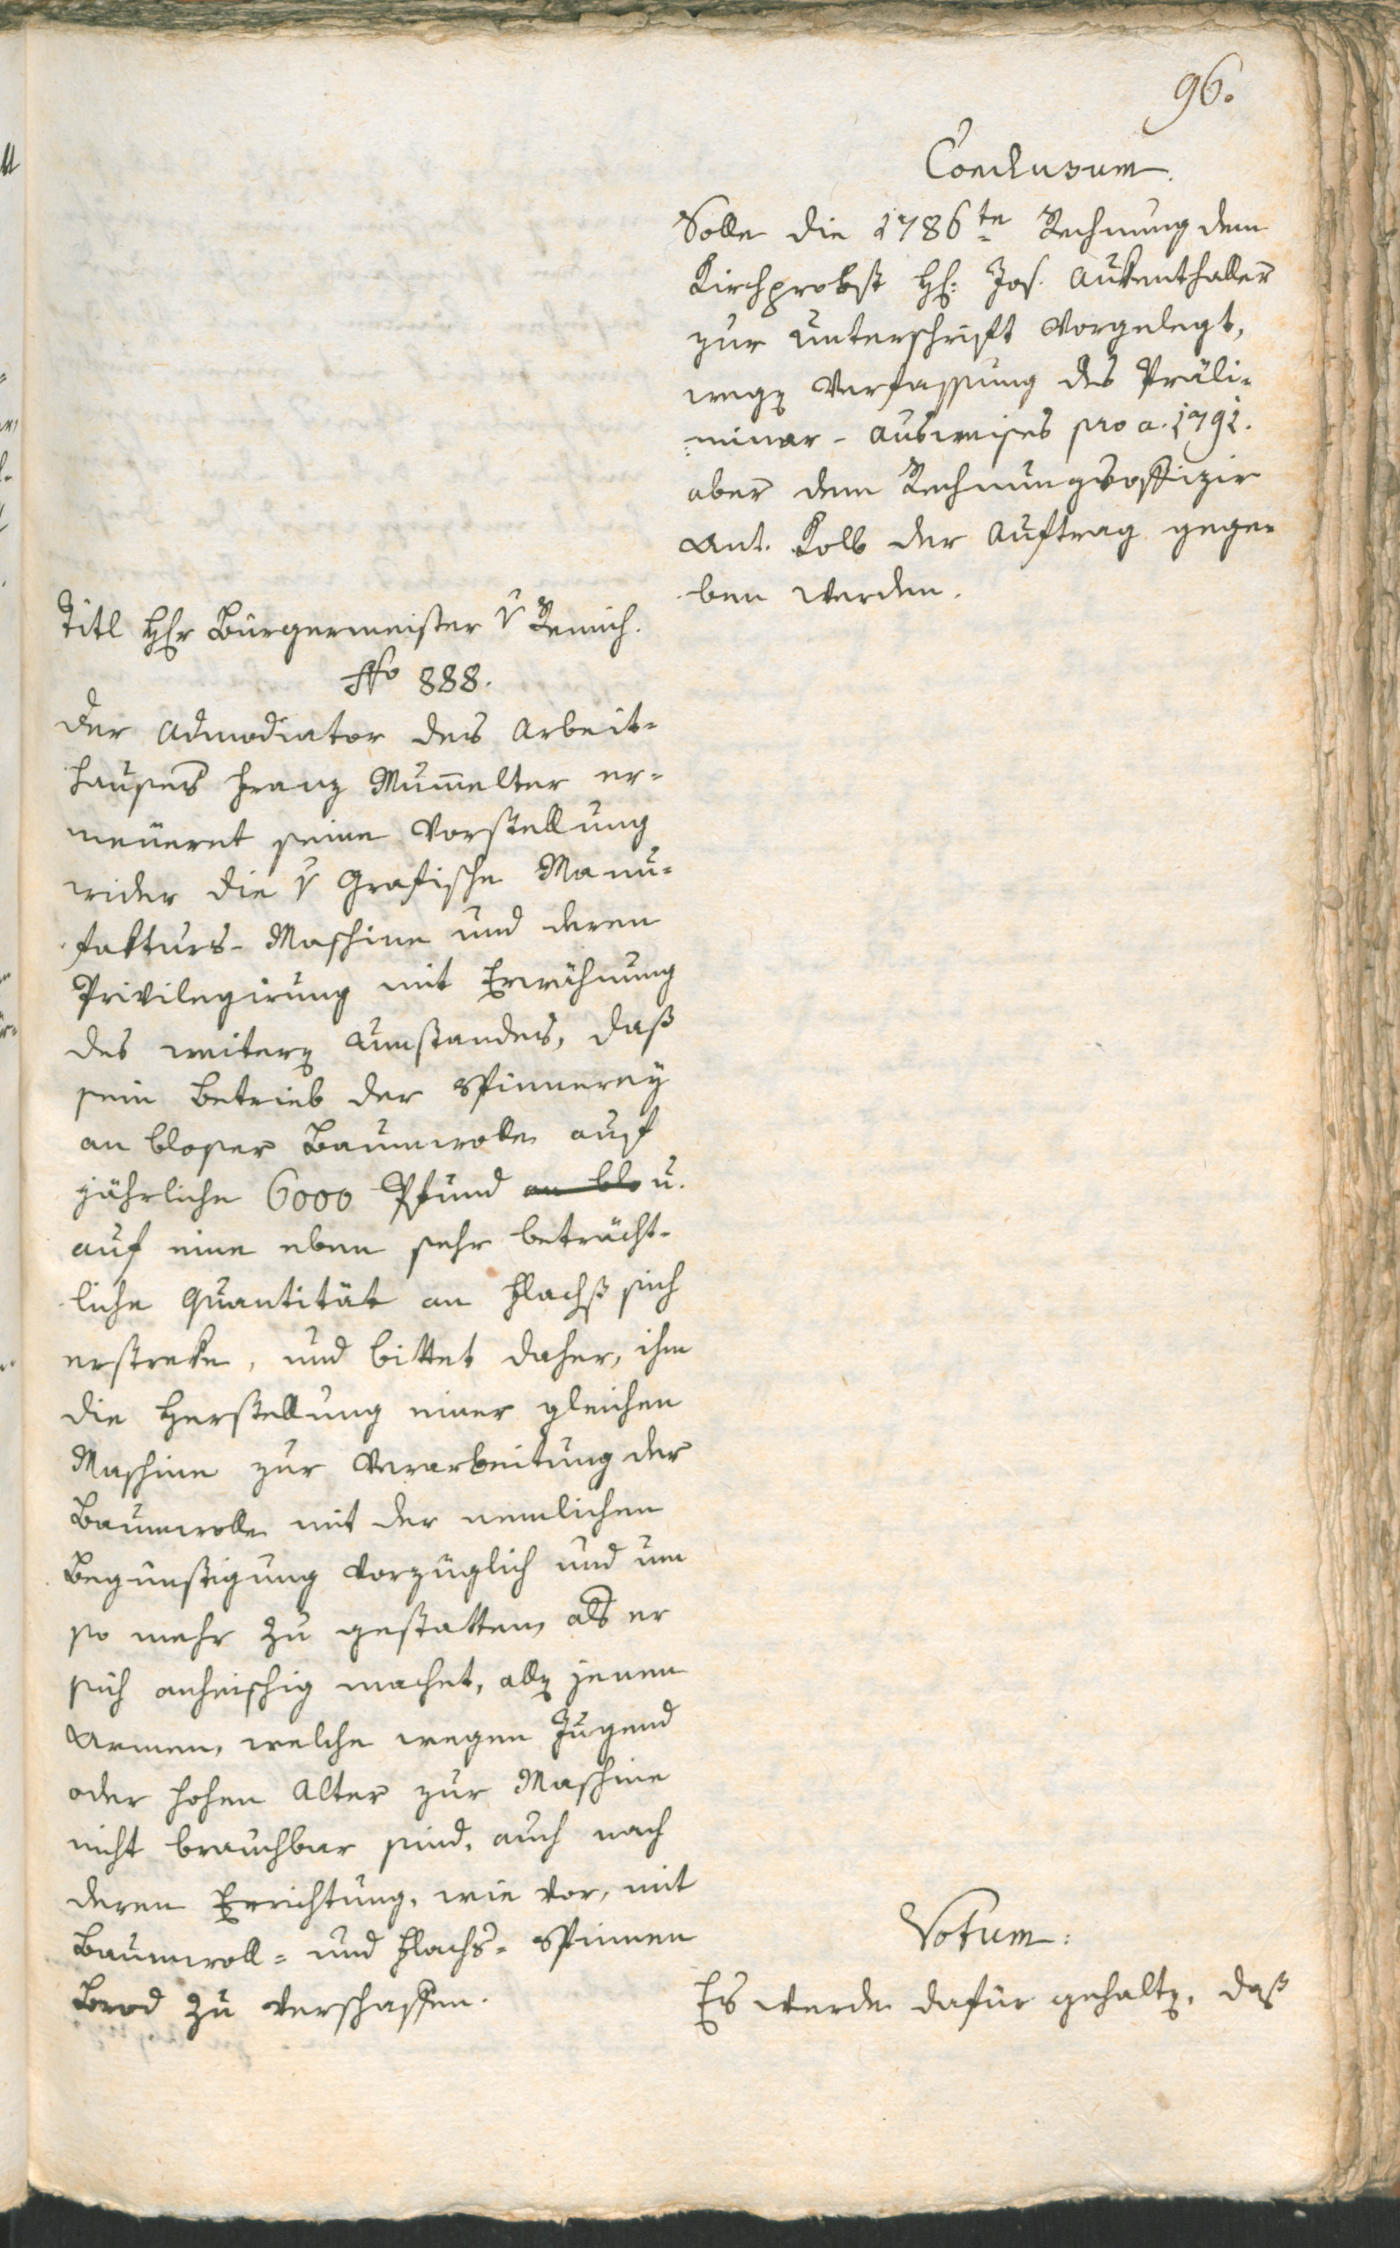 96.
Conclusum.
Solle die 1786te Rechnung dem
Kirchprobst H: Jos. Aukenthaller
zur Unterschrift vorgelegt,
wegen Verfassung des Präli¬
minar-Ausweises pro a. 1791.
aber dem Rechnungsoffizir
Ant. Kolb der Auftrag gege¬
ben werden.
Titl Hr Bürgermeister v Remich.
No 888.
Der Admodiator des Arbeit¬
hauses Franz Mum̄elter er¬
neueret seine Vorstellung
wider die v Grafische Manu¬
fakturs-Maschine und deren
Privilegirung mit Erwähnung
des weiteren Umstandes, daß
sein Betrieb der Spinnerey
an bloser Baumwolle auf
jährliche 6000 Pfund an blo u.
auf eine eben sehr beträcht¬
liche Quantität an Flachß sich
erstreke, und bittet daher, ihm
die Herstellung einer gleichen
Maschine zur Verarbeitung der
Baumwolle mit der nemlichen
Begünstigung vorzüglich und um
so mehr zu gestatten, als er
sich anheischig machet, allen jenen
Armen, welche wegen Jugend
oder hohen Alter zur Maschine
nicht brauchbar sind, auch nach
deren Errichtung, wie vor, mit
Baumwoll- und Flachs-Spinnen
Brod zu verschaffen.
Votum:
Es werde dafür gehalten, daß